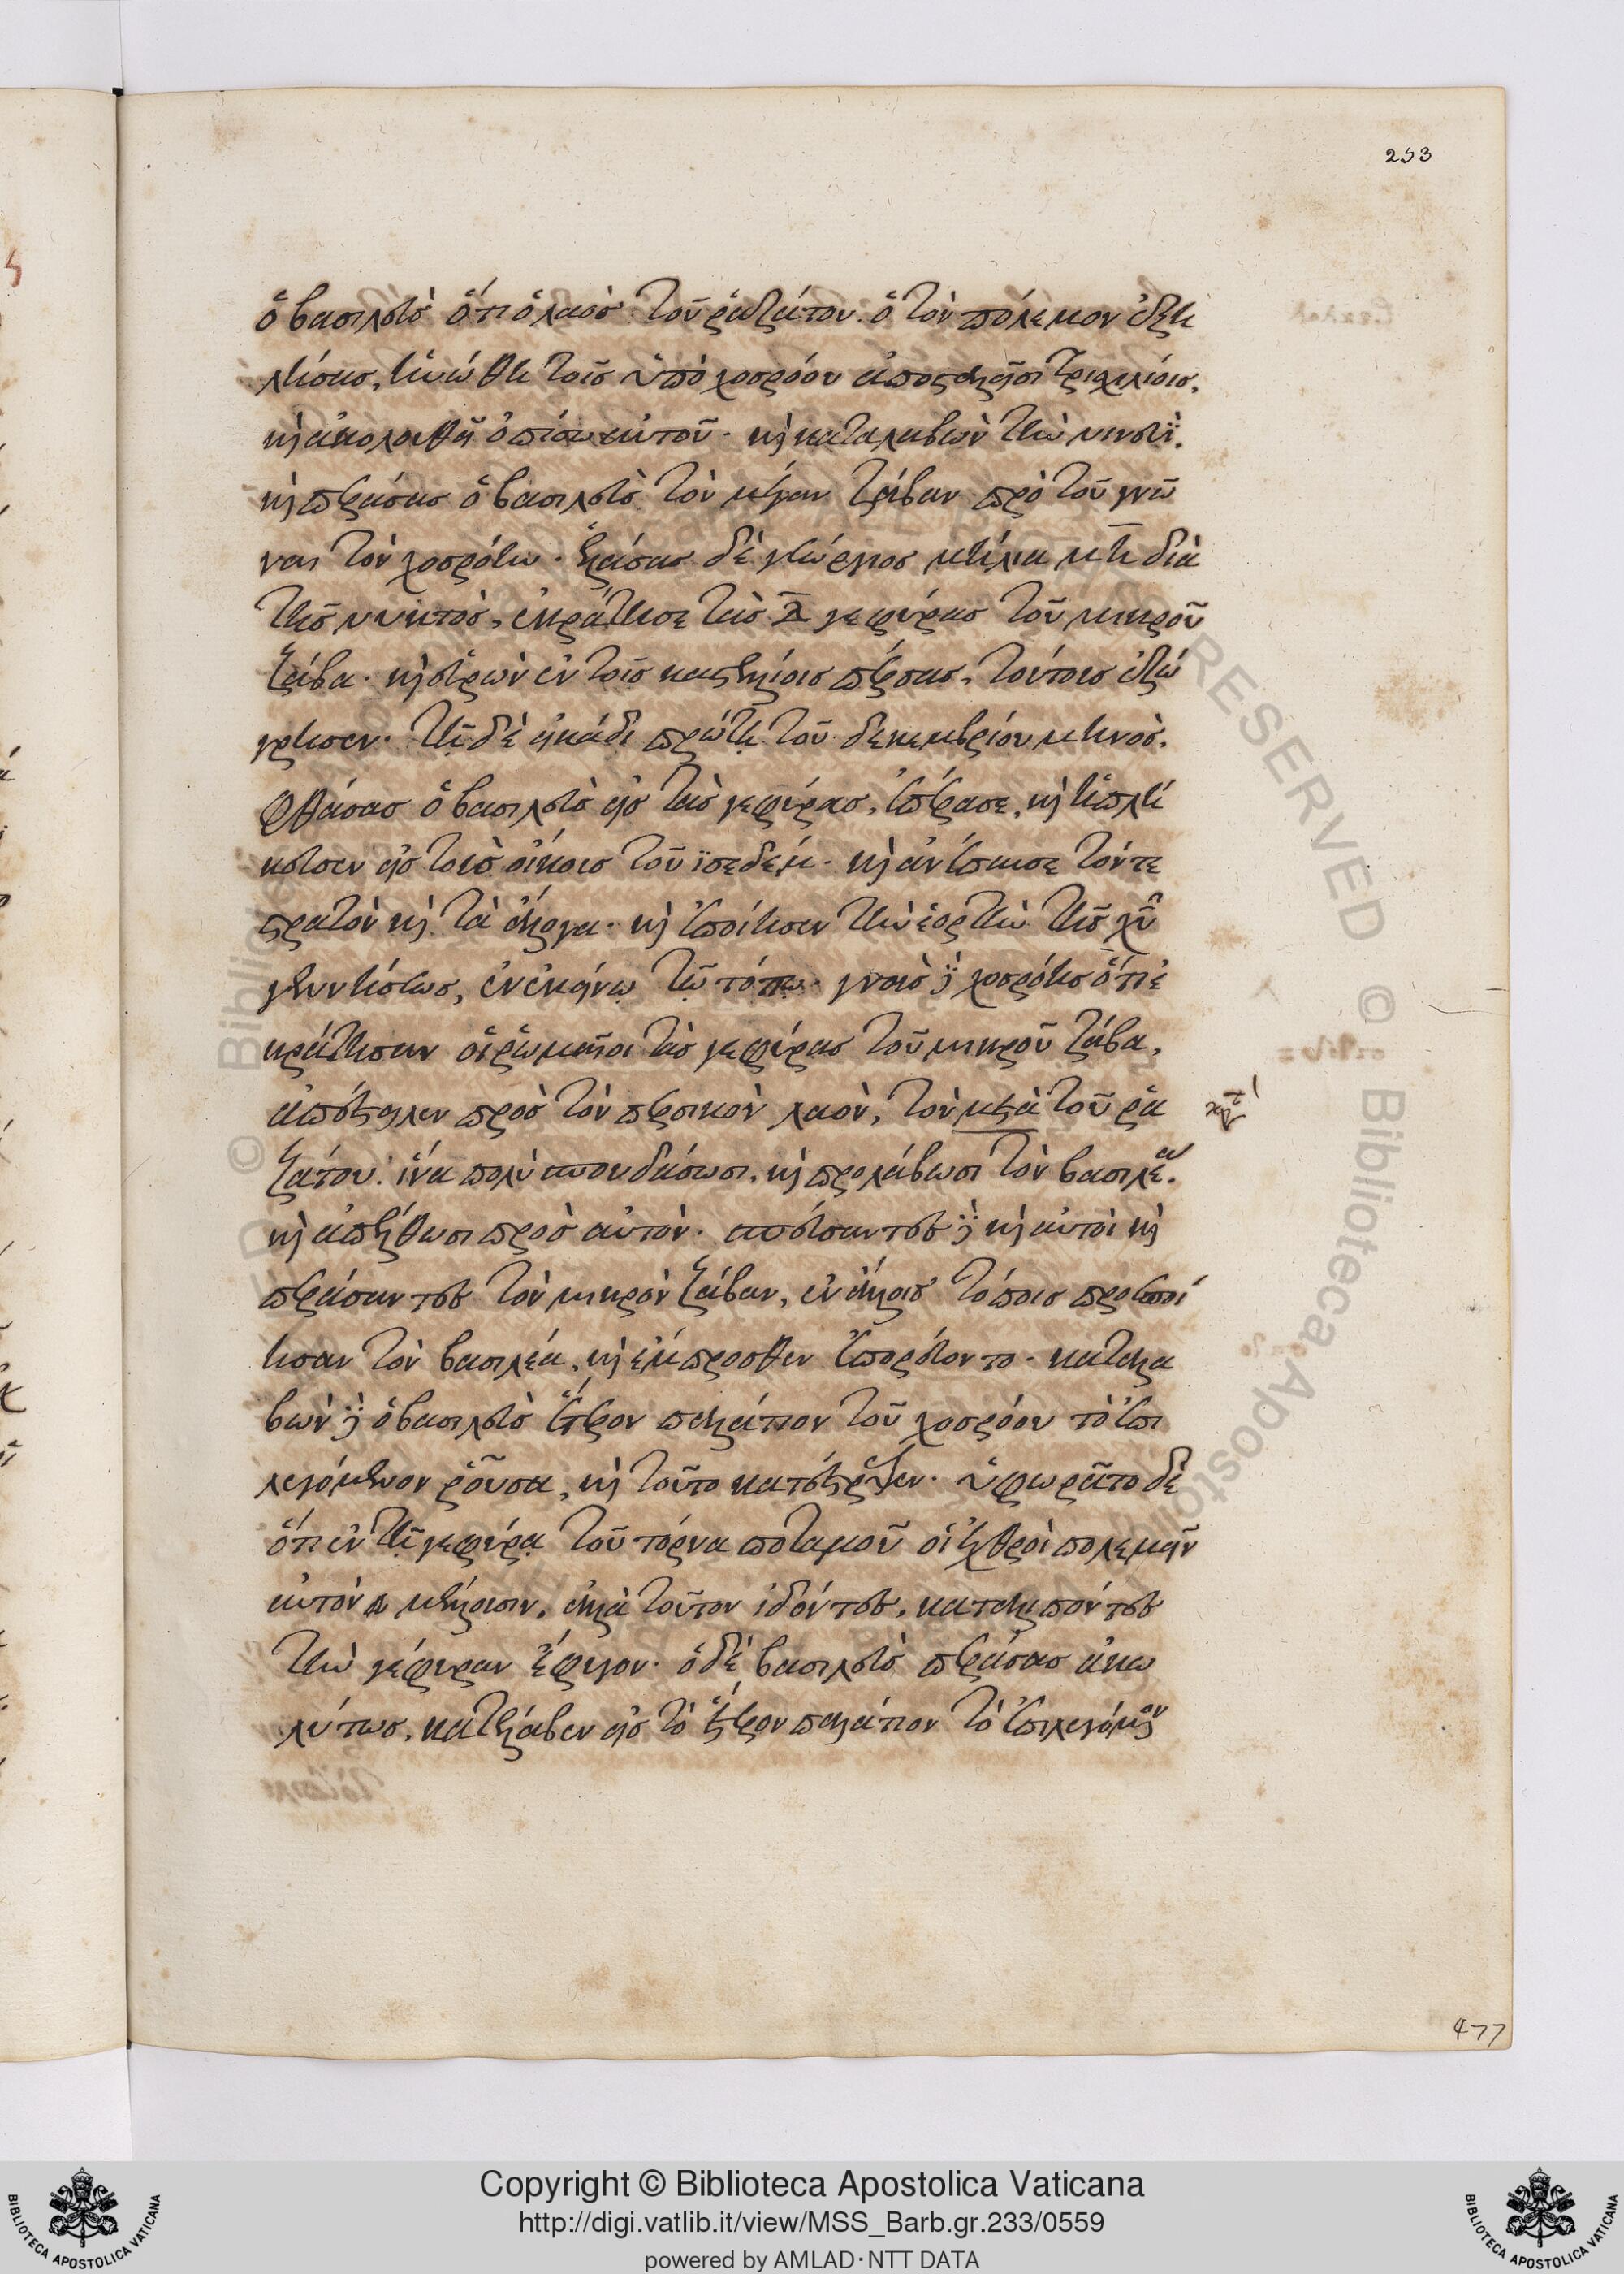 253
ὁ βασιλεὺς ὅτι ὁ λαὸς τοῦ ῥαζάτου ὁ τὸν πόλεμον ἐξει
λήσας, ἡνώθη τοῖς ὑπὸ χοσρόου ἀποσταλεῖσι τρισχιλίοις,
καὶ ἀκολουθεῖ ὀπίσω αὐτοῦ. καὶ καταλαβὼν τὴν νινευΐ.
καὶ περάσας ὁ βασιλεὺς τὸν μέγαν ζάβαν πρὸ τοῦ γνῶ
ναι τὸν χοσρόην. ἐλάσας δὲ γεώργιος μίλια μη διὰ
τῆς νυκτὸς, ἐκράτησε τὰς δ γεφύρας τοῦ μικροῦ
ζάβα. καὶ εὑρὼν ἐν τοῖς καστελλίοις πέρσας, τούτους ἐζώ
γρησεν. τῇ δὲ εἰκάδι πρώτῃ τοῦ δεκεμβρίου μηνὸς,
φθάσας ὁ βασιλεὺς εἰς τὰς γεφύρας, ἐπέρασε, καὶ ἠπλή
κευσεν εἰς τοὺς οἴκους τοῦ ϊεσδέμ. καὶ ἀνέπαυσε τόν τε
στρατὸν καὶ τὰ ἄλογα. καὶ ἐποίησεν τὴν ἑορτὴν τῆς χυ
γεννήσεως, ἐν ἐκείνῳ τῷ τόπῳ. γνοὺς δὲ χοσρόης ὅτι ἐ
κράτησαν οἱ ῥωμαῖοι τὰς γεφύρας τοῦ μικροῦ ζάβα,
ἀπέστειλεν πρὸς τὸν περσικὸν λαὸν, τὸν μετὰ τοῦ ῥα
ζάτου. ἵνα πολὺ σπουδάσωσι, καὶ προλάβωσι τὸν βασιλέα.
καὶ ἀπέλθωσι πρὸς αὐτὸν. σπεύσαντες δὲ καὶ αὐτοὶ καὶ
περάσαντες τὸν μικρὸν ζάβαν, ἐν ἄλλοις τόποις προεποί
ησαν τὸν βασιλέα, καὶ ἔμπροσθεν ἐπορεύοντο. καταλα
βὼν δὲ ὁ βασιλεὺς ἕτερον παλάτιον τοῦ χοσρόου τὸ ἐπι
λεγόμενον ῥοῦσα, καὶ τοῦτο κατέστρεψεν. ὑφωρᾶτο δὲ
ὅτι ἐν τῇ γεφύρᾳ τοῦ τόρνα ποταμοῦ οἱ ἐχθροὶ πολεμεῖν
αὐτὸν μέλλουσιν. ἀλλὰ τοῦτον ἰδόντες, καταλιπόντες
τὴν γέφυραν ἔφυγον. ὁ δὲ βασιλεὺς περάσας ἀκω
λύτως, κατέλαβεν εἰς τὸ ἕτερον παλάτιον τὸ ἐπιλεγόμενον
477
Copyright © Biblioteca Apostolica Vaticana
http://digi.vatlib.it/view/MSS_Barb.gr.233/0559
powered by AMLAD·NTT DATA